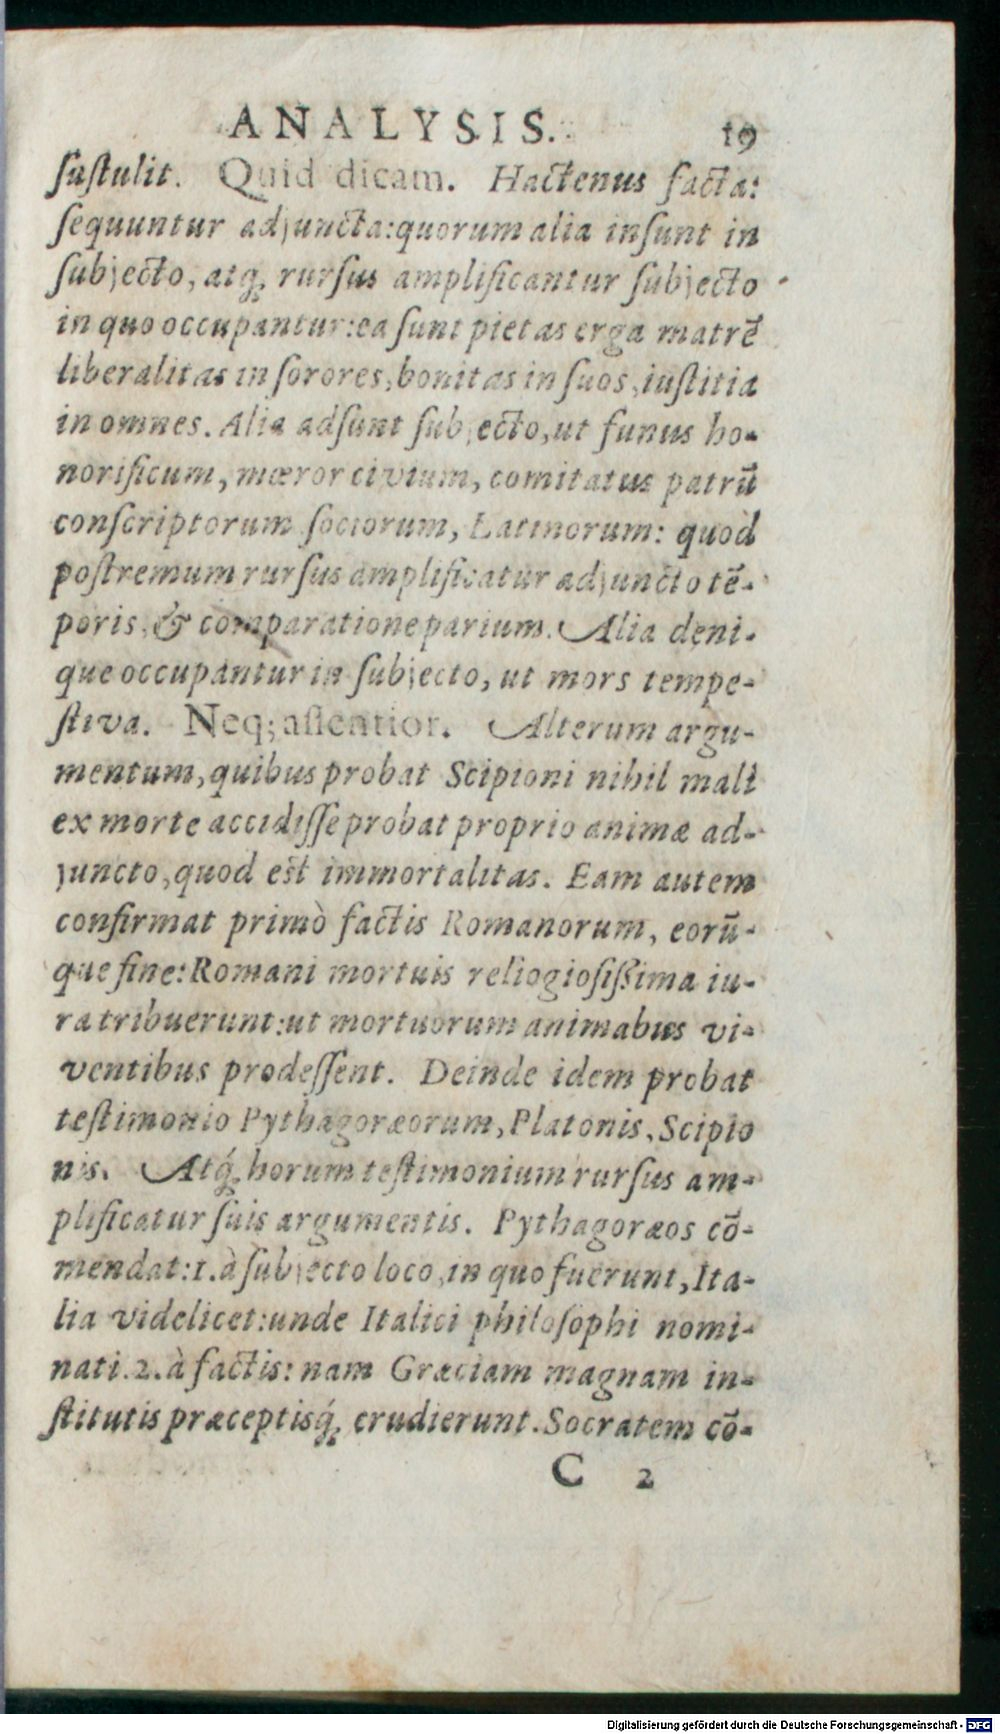 ANALYSIS. 19
ſuſtulit. Quid dicam. Hactenus facta:
ſequuntur adjuncta: quorum alia inſunt in
ſubjecto, atq́; rurſus amplificantur ſubjecto
in quo occupantur: ea ſunt pietas erga matrē
liberalitas in ſorores, bonitas in ſuos, iuſtitia
in omnes. Alia adſunt ſubjecto, ut funus ho-
norificum, mœror civium, comitatus patrū
conſcriptorum ſociorum, Latinorum: quod
poſtremum rurſus amplificatur adjuncto tē-
poris, & comparatione parium. Alia deni-
que occupantur in ſubjecto, ut mors tempe-
ſtiva. Neq; aſſentior. Alterum argu-
mentum, quibus probat Scipioni nihil mali
ex morte accidiſſe probat proprio animæ ad-
juncto, quod eſt immortalitas. Eam autem
confirmat primò factis Romanorum, eorū-
que fine: Romani mortuis reliogioſißima iu-
ra tribuerunt: ut mortuorum animabus vi-
ventibus prodeſſent. Deinde idem probat
teſtimonio Pythagoræorum, Platonis, Scipio
nis. Atq́; horum teſtimonium rurſus am-
plificatur ſuis argumentis. Pythagoræos cō-
mendat: 1. à ſubjecto loco, in quo fuerunt, Ita-
lia videlicet: unde Italici philoſophi nomi-
nati. 2. à factis: nam Græciam magnam in-
ſtitutis præceptisq́; erudierunt. Socratem cō-
C 2
Digitalisierung gefördert durch die Deutsche Forschungsgemeinschaft - DFG